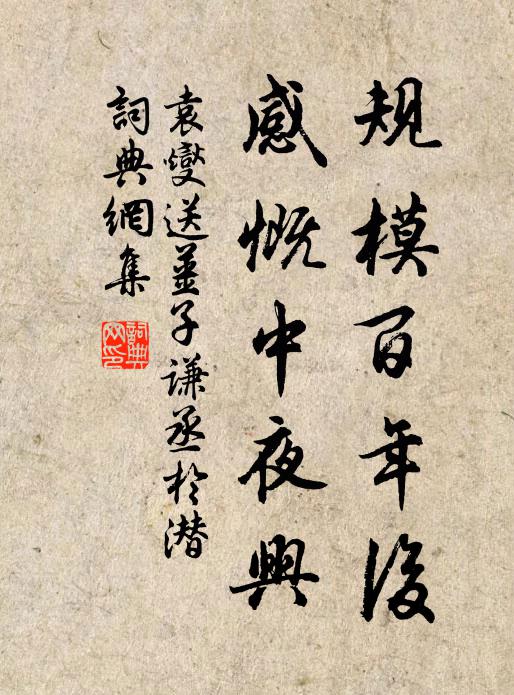 規模百年後
感慨中夜興
袁燮送姜子謙丞於潛
詞典網集
詞典
网印